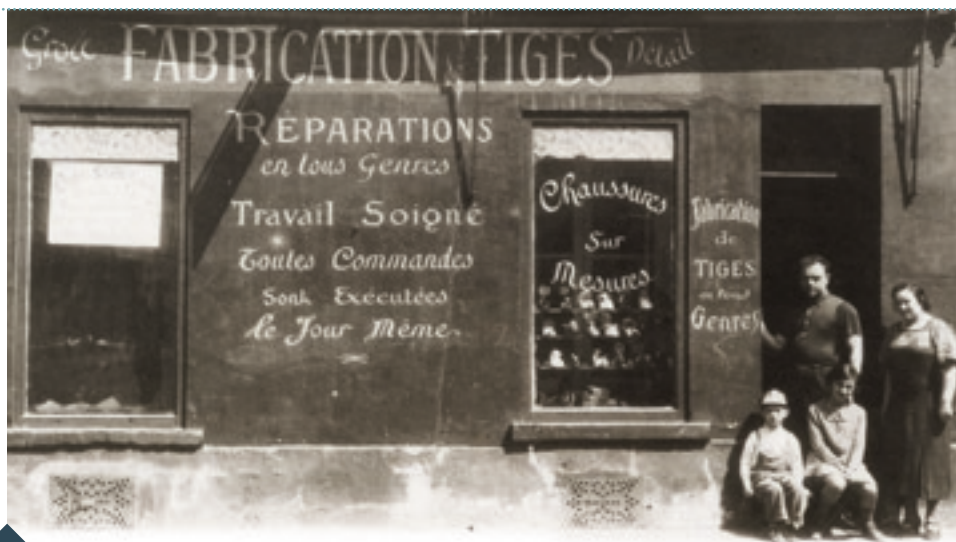 Gros FABRICATION de TIGES Détail
REPARATIONS
en tous Genres
Travail Soigné
Toutes Commandes
Sont Exécutées
le Jour Même
Chaussures
Sur
Mesures
Fabrication
de
TIGES
en tous
Genres